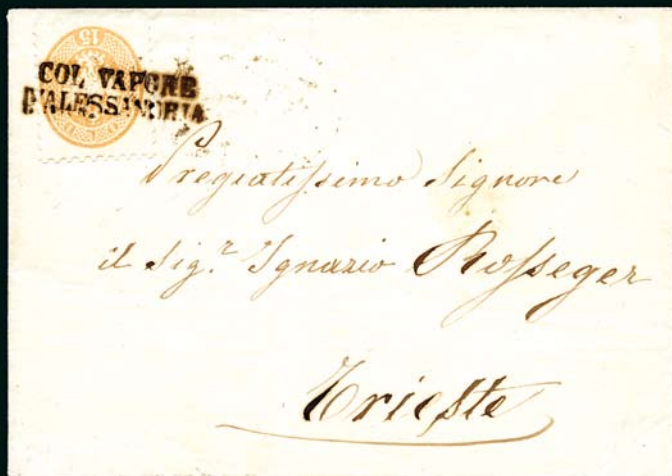 15
COL VAPORE
D'ALESSANDRIA
Pregiatissimo Signore
il Sig.r Ignazio Rosseger
Trieste